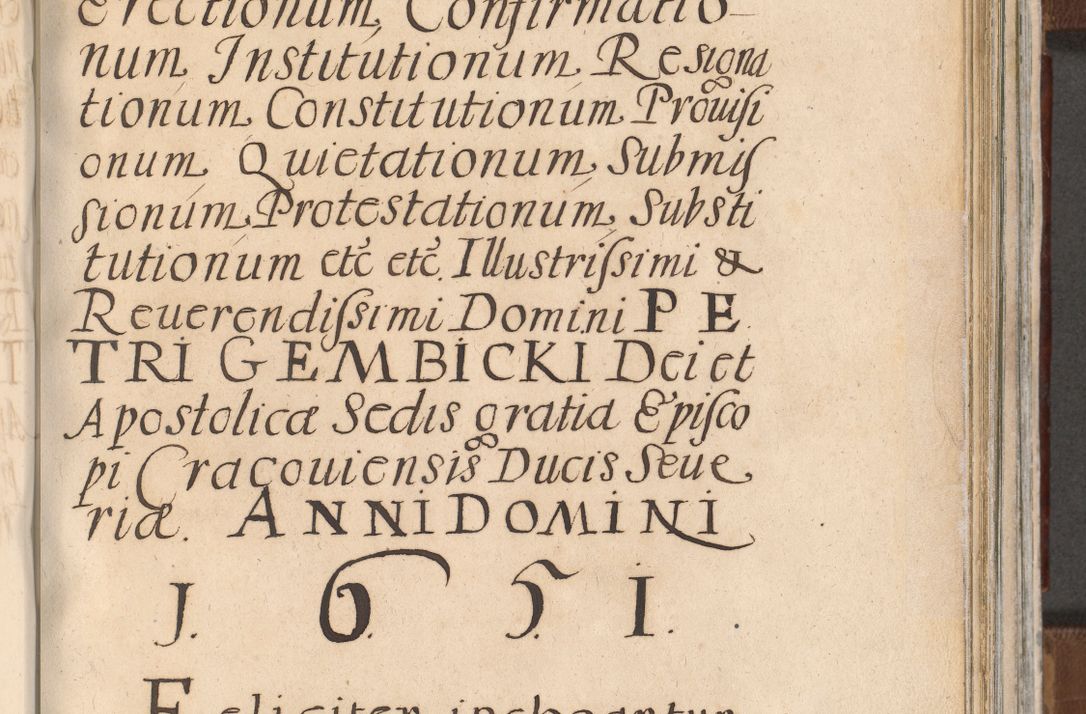 Erectionum, Confirmatio-
num, Institutionum, Resigna
tionum, Constitutionum, Provisi
onum, Quietationum, Submis
sionum, Protestationum, Substi
tutionum etc etc. Illustrissimi &
Reuerendissimi Domini PE
TRI GEMBICKI Dei et
Apostolicæ Sedis gratia Episco
pi Cracouiensis Ducis Seue
riæ. ANNI DOMINI
J. 6. 5. I.
Feliciter inchoantur